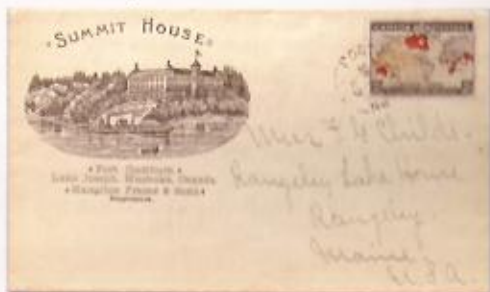 SUMMIT HOUSE
CANADA POSTAGE
Port Cockburn
Lake Joseph, Muskoka, Canada
Hamilton Fraser & Sons
Proprietors
Rangeley Lake House
Rangeley
Maine
U.S.A.